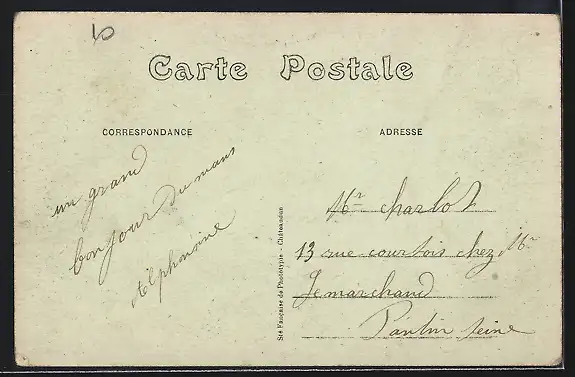 Carte Postale
CORRESPONDANCE
ADRESSE
un grand
bonjour du mans
Alphonsine
Mr Charlot
13 rue courtois chez Mr
Lemarchand
Pantin Seine
Sté Française de Phototypie - Châteaudun